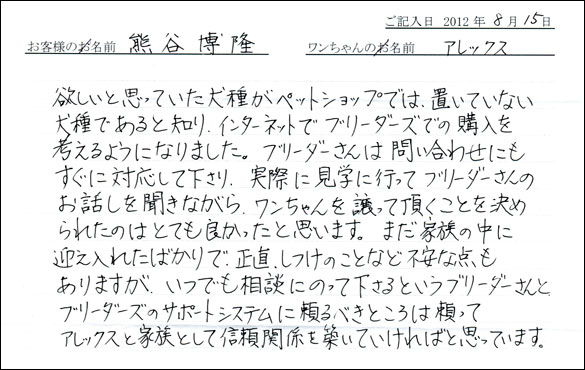 ご記入日 2012 年 8 月 15 日
お客様のお名前 熊谷 博隆 ワンちゃんのお名前 アレックス
欲しいと思っていた犬種がペットショップでは、置いていない
犬種であると知り、インターネットでブリーダーズでの購入を
考えるようになりました。ブリーダーさんは問い合わせにも
すぐに対応して下さり、実際に見学に行ってブリーダーさんの
お話しを聞きながら、ワンちゃんを譲って頂くことを決め
られたのはとても良かったと思います。まだ家族の中に
迎え入れたばかりで、正直、しつけのことなど不安な点も
ありますが、いつでも相談にのって下さるというブリーダーさんと
ブリーダーズのサポートシステムに頼るべきところは頼って
アレックスと家族として信頼関係を築いていければと思っています。